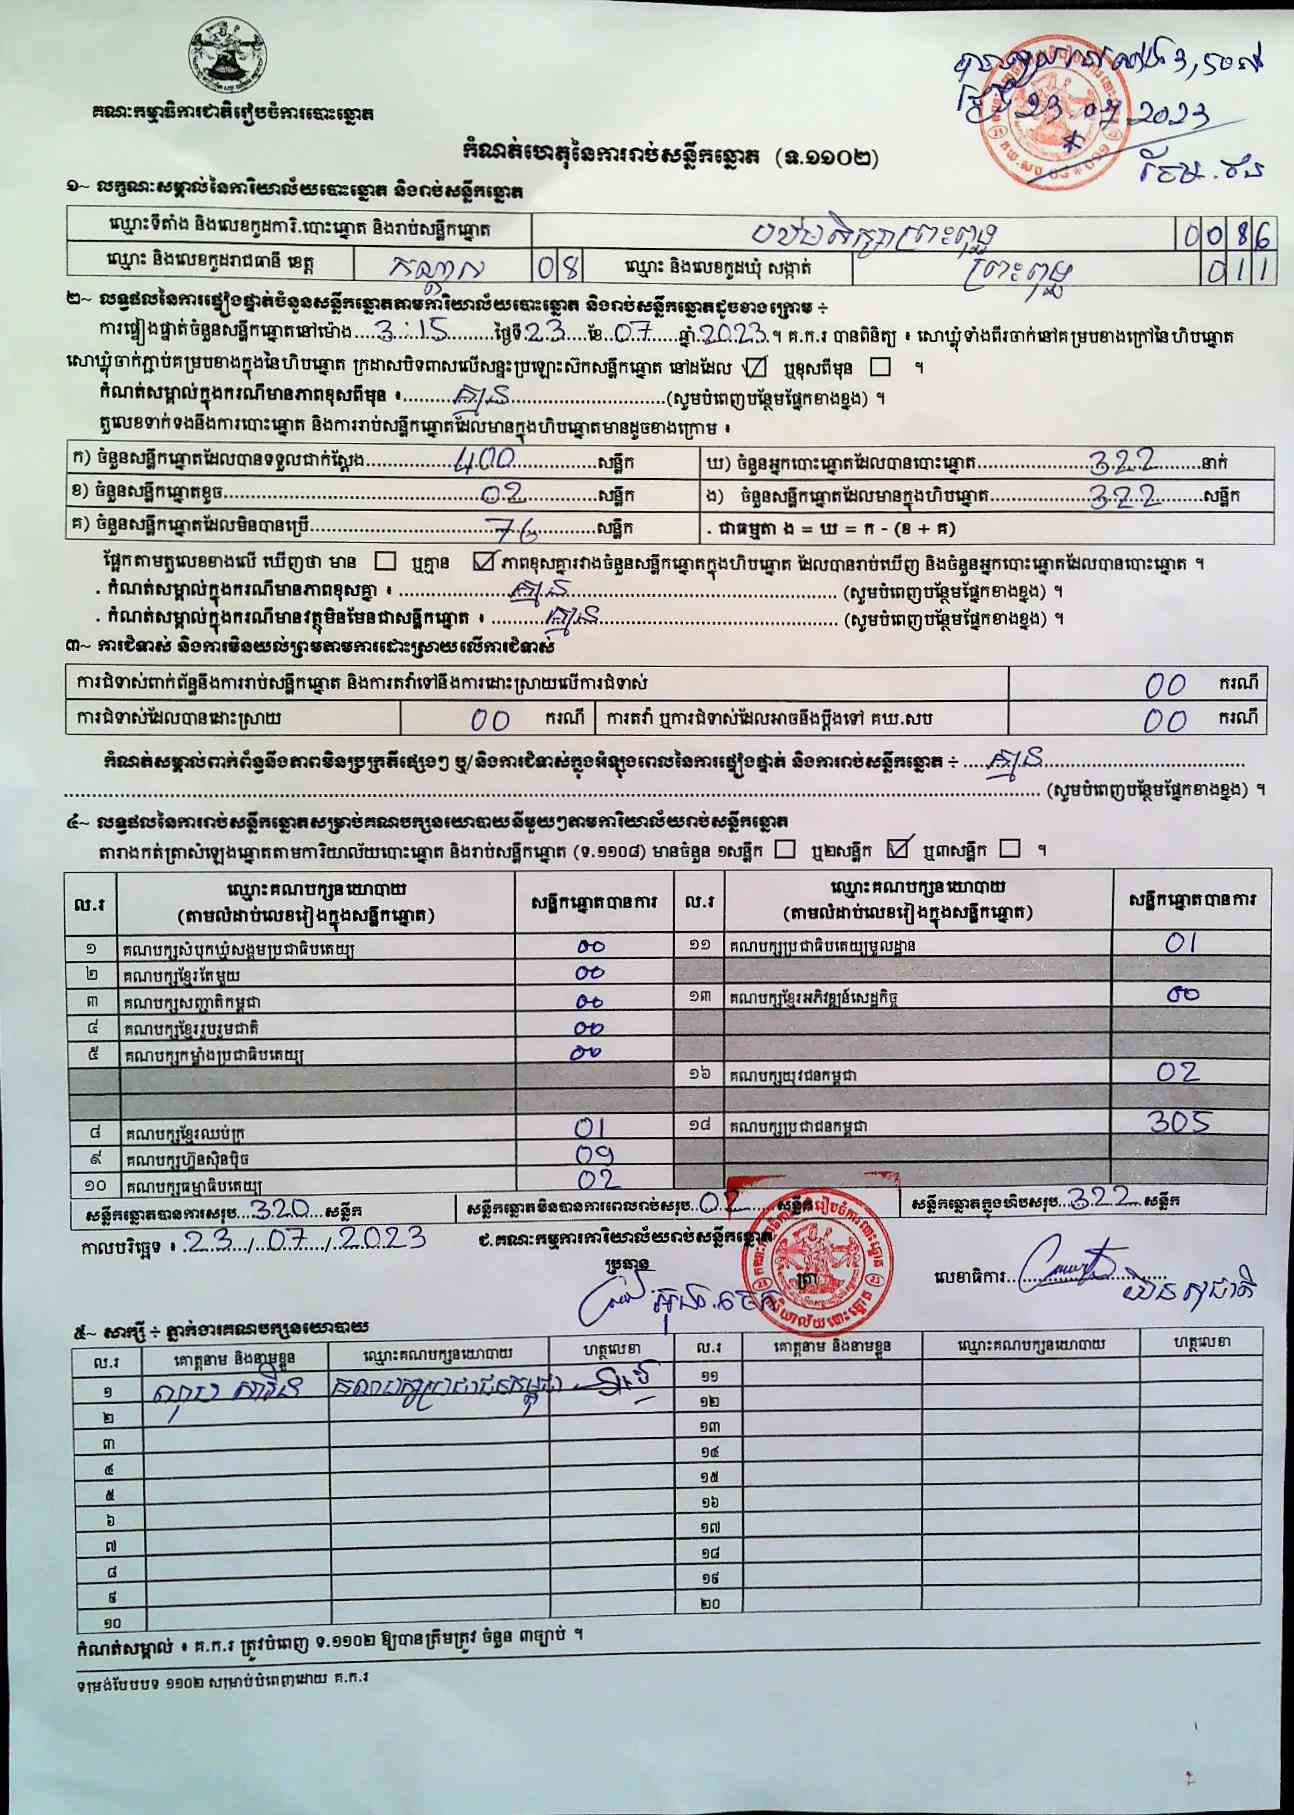 គណៈកម្មាធិការជាតិរៀបចំការបោះឆ្នោត
23.07.2023
កំណត់ហេតុនៃការរាប់សន្លឹកឆ្នោត (ទ.១១០២)
១~ លក្ខណៈសម្គាល់នៃការិយាល័យបោះឆ្នោត និងរាប់សន្លឹកឆ្នោត
ឈ្មោះទីតាំង និងលេខកូដការិ.បោះឆ្នោត និងរាប់សន្លឹកឆ្នោត បឋមសិក្សាព្រះពុទ្ធ 0086
ឈ្មោះ និងលេខកូដរាជធានី ខេត្ត កណ្តាល 08 ឈ្មោះ និងលេខកូដឃុំ សង្កាត់ ព្រះពុទ្ធ 011
២~ លទ្ធផលនៃការផ្ទៀងផ្ទាត់ចំនួនសន្លឹកឆ្នោតតាមការិយាល័យបោះឆ្នោត និងរាប់សន្លឹកឆ្នោតដូចខាងក្រោម ÷
ការផ្ទៀងផ្ទាត់ចំនួនសន្លឹកឆ្នោតនៅម៉ោង 3:15 ថ្ងៃទី 23 ខែ 07 ឆ្នាំ 2023 ។ គ.ក.រ បានពិនិត្យ ៖ សោឃ្លុំទាំងពីរចាក់នៅគម្របខាងក្រៅនៃហិបឆ្នោត
សោឃ្លុំចាក់ភ្ជាប់គម្របខាងក្នុងនៃហិបឆ្នោត ក្រដាសបិទពាសលើសន្ទះប្រឡោះស៊កសន្លឹកឆ្នោត នៅដដែល ☑ ឬខុសពីមុន ☐ ។
កំណត់សម្គាល់ក្នុងករណីមានភាពខុសពីមុន ៖ គ្មាន (សូមបំពេញបន្ថែមផ្នែកខាងខ្នង) ។
តួលេខទាក់ទងនឹងការបោះឆ្នោត និងការរាប់សន្លឹកឆ្នោតដែលមានក្នុងហិបឆ្នោតមានដូចខាងក្រោម ៖
ក) ចំនួនសន្លឹកឆ្នោតដែលបានទទួលជាក់ស្តែង 400 សន្លឹក ឃ) ចំនួនអ្នកបោះឆ្នោតដែលបានបោះឆ្នោត 322 នាក់
ខ) ចំនួនសន្លឹកឆ្នោតខូច 02 សន្លឹក ង) ចំនួនសន្លឹកឆ្នោតដែលមានក្នុងហិបឆ្នោត 322 សន្លឹក
គ) ចំនួនសន្លឹកឆ្នោតដែលមិនបានប្រើ 76 សន្លឹក . ជាធម្មតា ង = ឃ = ក - (ខ + គ)
ផ្អែកតាមតួលេខខាងលើ ឃើញថា មាន ☐ ឬគ្មាន ☑ ភាពខុសគ្នារវាងចំនួនសន្លឹកឆ្នោតក្នុងហិបឆ្នោត ដែលបានរាប់ឃើញ និងចំនួនអ្នកបោះឆ្នោតដែលបានបោះឆ្នោត ។
. កំណត់សម្គាល់ក្នុងករណីមានភាពខុសគ្នា ៖ គ្មាន (សូមបំពេញបន្ថែមផ្នែកខាងខ្នង) ។
. កំណត់សម្គាល់ក្នុងករណីមានវត្ថុមិនមែនជាសន្លឹកឆ្នោត ៖ គ្មាន (សូមបំពេញបន្ថែមផ្នែកខាងខ្នង) ។
៣~ ការជំទាស់ និងការមិនយល់ព្រមតាមការដោះស្រាយលើការជំទាស់
ការជំទាស់ពាក់ព័ន្ធនឹងការរាប់សន្លឹកឆ្នោត និងការតវ៉ាទៅនឹងការដោះស្រាយលើការជំទាស់ 00 ករណី
ការជំទាស់ដែលបានដោះស្រាយ 00 ករណី ការតវ៉ា ឬការជំទាស់ដែលអាចនឹងប្តឹងទៅ គឃ.សប 00 ករណី
កំណត់សម្គាល់ពាក់ព័ន្ធនឹងភាពមិនប្រក្រតីផ្សេងៗ ឬ/និងការជំទាស់ក្នុងអំឡុងពេលនៃការផ្ទៀងផ្ទាត់ និងការរាប់សន្លឹកឆ្នោត ÷ គ្មាន
(សូមបំពេញបន្ថែមផ្នែកខាងខ្នង) ។
៤~ លទ្ធផលនៃការរាប់សន្លឹកឆ្នោតសម្រាប់គណបក្សនយោបាយនីមួយៗតាមការិយាល័យរាប់សន្លឹកឆ្នោត
តារាងកត់ត្រាសំឡេងឆ្នោតតាមការិយាល័យបោះឆ្នោត និងរាប់សន្លឹកឆ្នោត (ទ.១១០៨) មានចំនួន ១សន្លឹក ☐ ឬ២សន្លឹក ☑ ឬ៣សន្លឹក ☐ ។
ល.រ ឈ្មោះគណបក្សនយោបាយ (តាមលំដាប់លេខរៀងក្នុងសន្លឹកឆ្នោត) សន្លឹកឆ្នោតបានការ ល.រ ឈ្មោះគណបក្សនយោបាយ (តាមលំដាប់លេខរៀងក្នុងសន្លឹកឆ្នោត) សន្លឹកឆ្នោតបានការ
១ គណបក្សសំបុកឃ្មុំសង្គមប្រជាធិបតេយ្យ 00 ១១ គណបក្សប្រជាធិបតេយ្យមូលដ្ឋាន 01
២ គណបក្សខ្មែរតែមួយ 00
៣ គណបក្សសញ្ជាតិកម្ពុជា 00 ១៣ គណបក្សខ្មែរអភិវឌ្ឍន៍សេដ្ឋកិច្ច 00
៤ គណបក្សខ្មែររួបរួមជាតិ 00
៥ គណបក្សកម្លាំងប្រជាធិបតេយ្យ 00
១៦ គណបក្សយុវជនកម្ពុជា 02
៨ គណបក្សខ្មែរឈប់ក្រ 01 ១៨ គណបក្សប្រជាជនកម្ពុជា 305
៩ គណបក្សហ៊្វុនស៊ិនប៉ិច 09
១០ គណបក្សធម្មាធិបតេយ្យ 02
សន្លឹកឆ្នោតបានការសរុប 320 សន្លឹក សន្លឹកឆ្នោតមិនបានការពេលរាប់សរុប 02 សន្លឹក សន្លឹកឆ្នោតក្នុងហិបសរុប 322 សន្លឹក
កាលបរិច្ឆេទ ៖ 23/07/2023 ជ.គណៈកម្មការការិយាល័យរាប់សន្លឹកឆ្នោត
ប្រធាន ត្រា លេខាធិការ
៥~ សាក្សី ÷ ភ្នាក់ងារគណបក្សនយោបាយ
ល.រ គោត្តនាម និងនាមខ្លួន ឈ្មោះគណបក្សនយោបាយ ហត្ថលេខា ល.រ គោត្តនាម និងនាមខ្លួន ឈ្មោះគណបក្សនយោបាយ ហត្ថលេខា
១ គណបក្សប្រជាជនកម្ពុជា ១១
២ ១២
៣ ១៣
៤ ១៤
៥ ១៥
៦ ១៦
៧ ១៧
៨ ១៨
៩ ១៩
១០ ២០
កំណត់សម្គាល់ ៖ គ.ក.រ ត្រូវបំពេញ ទ.១១០២ ឱ្យបានត្រឹមត្រូវ ចំនួន ៣ច្បាប់ ។
ទម្រង់បែបបទ ១១០២ សម្រាប់បំពេញដោយ គ.ក.រ